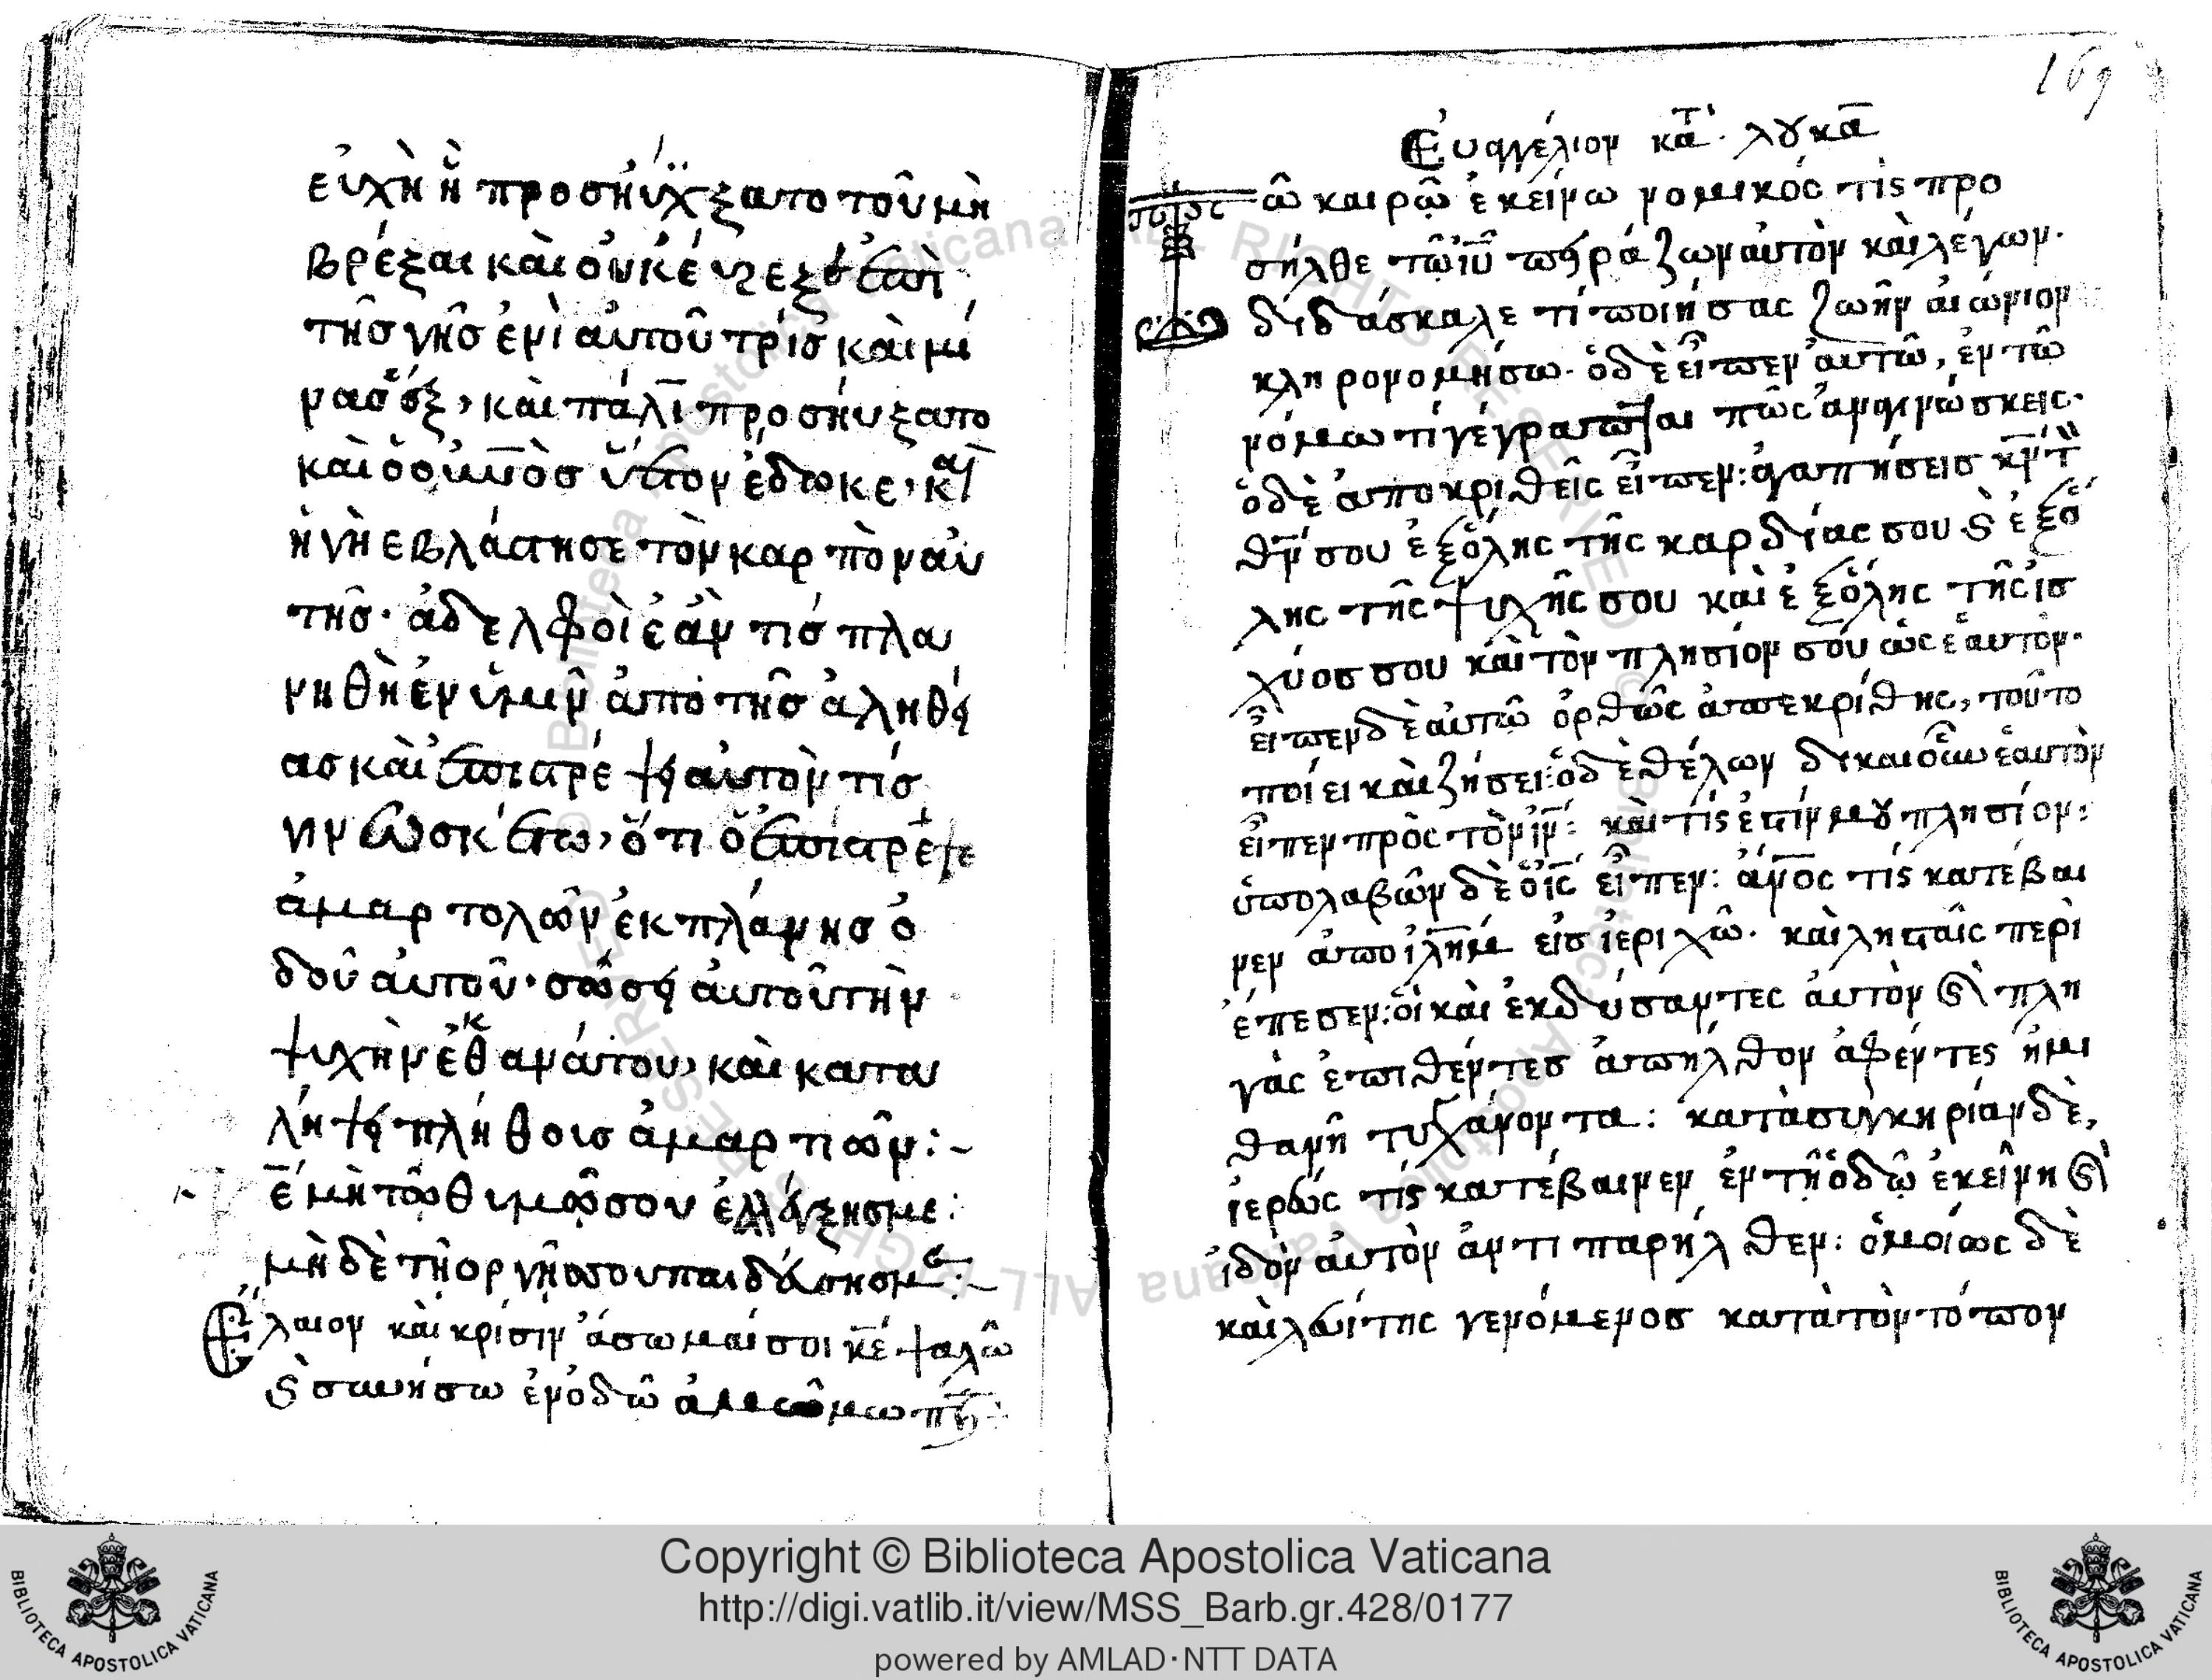 εὐχὴ ἢ προσηύχξατο τοῦ μὴ
βρέξαι καὶ οὐκ έβρεξεν ἐπὶ
τῆσ γῆσ ἐνὶ αυτοῦ τρίσ καὶ μί
νασ ὅξ, καὶ πάλῑ προσήυξατο
καὶ ὁ οὐν̅ὸσ ὕετον έδωκε, καὶ
ἡ γὴ εβλάστησε τὸν καρπὸν αὐ
τῆσ· ἀδελφοὶ ἐὰν τισ πλα
νηθὴ ἐν ὑμῖν ἀπὸ τῆσ ἀληθεί
ασ καὶ ἐπιστρέψει αυτὸν τίσ
γινωσκέτω, ὅτι ὁ ἐπιστρέψε
ἁμαρτολῶν ἐκ πλάνησ ὁ
δοῦ ἀυτοῦ· σώσει ἀυτοῦ τὴν
ψυχὴν ἐκ θανάτου, καὶ κατα
λήψει πλήθοισ ἁμαρτιῶν:~
ε̅ μὴ τῶ θυμῶ σου ἐλλέγξησ με:
μὴ δὲ τῆ οργῆ σου παιδεύσησ με:~
Ελαιον καὶ κρίσιν ἄσωμαί σοι κ̅ε ψαλῶ
ϛ συνήσω ἐν οδῶ ἀμώμω
169
Ευαγγέλιον κατ· λουκα̅
Τῶ καιρῶ ἐκείνω νομικός τὶς προ
σήλθε τῶ ἰ̅υ̅ πειράζων αὐτὸν καὶ λέγων·
διδάσκαλε τί ποιήσας ζωὴν αἰώνιον
κληρονομήσω· ὁ δὲ εἶπεν αυτῶ, ἐν τῶ
νόμω τί γέγραπται πῶς ἀναγινώσκεις·
ὁ δὲ ἀποκριθεὶς εἶπεν: ἀγαπήσεισ κ̅ν τ
θ̅ν σου ἐξ ὅλης τῆς καρδίας σου ϛ ἐξ ὅ
λης τῆς ψυχῆς σου καὶ ἐξ ὅλης τῆς ἰσ
χύοσ σου καὶ τὸν πλησίον σου ὡς ἑαυτόν·
εἶπεν δὲ αὐτῶ ὀρθῶς ἀπεκρίθης, τοῦτο
ποίει καὶ ζήσει: ὁ δὲ θέλων δικαιοῦν ἑαυτὸν
εἶπεν πρὸς τὸν ἰ̅ν̅: καὶ τίς ἐστίν μου πλησίον:
ὑπολαβὼν δὲ ὁ ἰ̅ς̅ εἶπεν: ἄν̅ος τίς κατέβαι
νεν ἀπο ἰλ̅ημ εἰσ ἰεριχῶ· καὶ ληισταῖς περὶ
έπεσεν: οἳ καὶ ἐκδύσαντες ἀυτὸν καὶ πλη
γὰς ἐπιθέντεσ ἀπῆλθον ἀφέντες ἡμι
θανῆ τυχάνοντα: κατὰ συγκηρίαν δὲ,
ἱερεύς τίς κατέβαινεν ἐν τῆ ὁδῶ ἐκείνη καὶ
ἰδὸν ἀυτὸν ἀντιπαρῆλθεν: ὁμοίως δὲ
καὶ λευίτης γενόμενοσ κατὰ τὸν τόπον
Copyright © Biblioteca Apostolica Vaticana
http://digi.vatlib.it/view/MSS_Barb.gr.428/0177
powered by AMLAD·NTT DATA